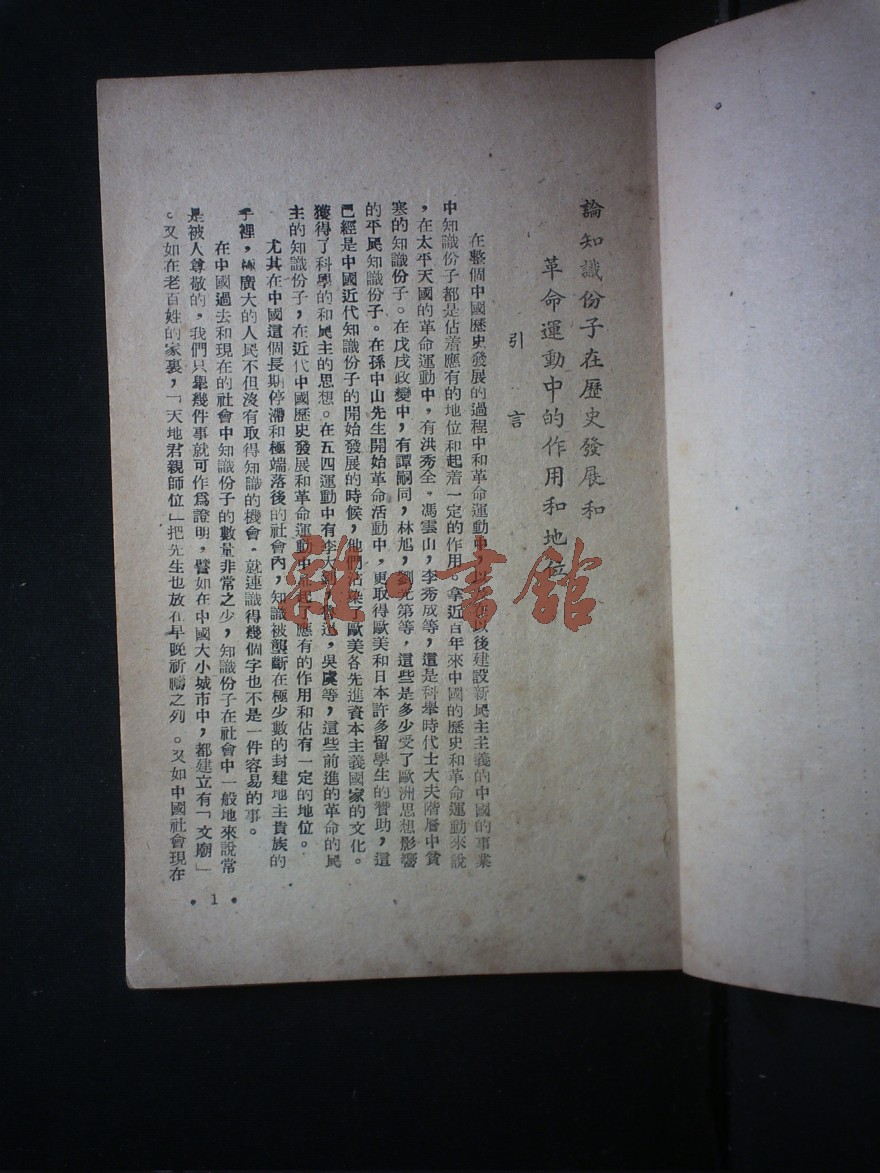 論知識份子在歷史發展和
革命運動中的作用和地位
引言
在整個中國歷史發展的過程中和革命運動中以及在以後建設新民主主義的中國的事業
中知識份子都是佔着應有的地位和起着一定的作用。拿近百年來中國的歷史和革命運動來說
，在太平天國的革命運動中，有洪秀全，馮雲山，李秀成等，這是科舉時代士大夫階層中貧
寒的知識份子。在戊戌政變中，有譚嗣同，林旭，劉光第等，這些是多少受了歐洲思想影響
的平民知識份子。在孫中山先生開始革命活動中，更取得歐美和日本許多留學生的贊助，這
已經是中國近代知識份子的開始發展的時候，他們沾染了歐美各先進資本主義國家的文化。
獲得了科學的和民主的思想。在五四運動中有李大釗，魯迅，吳虞等，這些前進的革命的民
主的知識份子，在近代中國歷史發展和革命運動中起了應有的作用和佔有一定的地位。
尤其在中國這個長期停滯和極端落後的社會內，知識被壟斷在極少數的封建地主貴族的
手裡，極廣大的人民不但沒有取得知識的機會，就連識得幾個字也不是一件容易的事。
在中國過去和現在的社會中知識份子的數量非常之少，知識份子在社會中一般地來說常
是被人尊敬的，我們只舉幾件事就可作爲證明，譬如在中國大小城市中，都建立有「文廟」
。又如在老百姓的家裏，「天地君親師位」把先生也放在早晚祈禱之列。又如中國社會現在
•1•
雜·書館